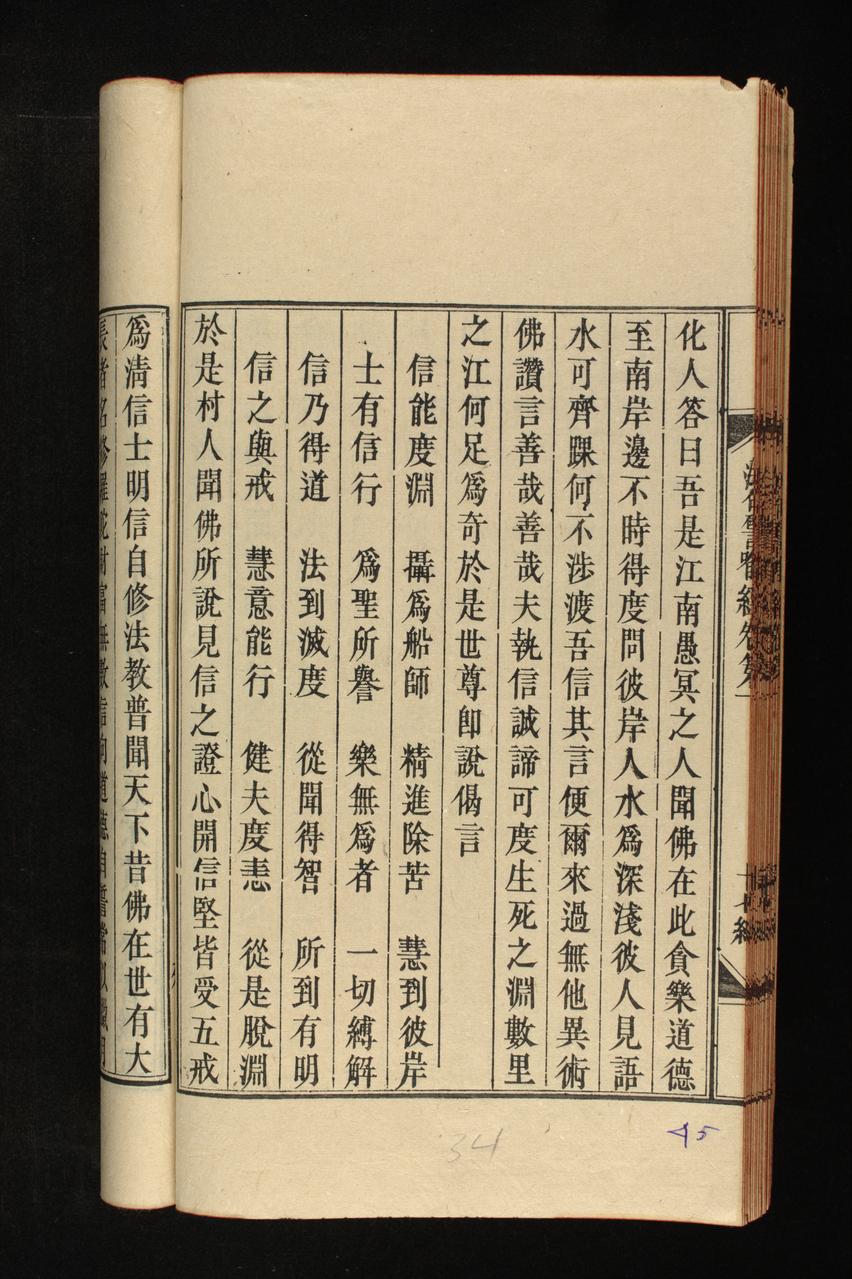 化人答曰吾是江南愚冥之人聞佛在此貪樂道德
至南岸邊不時得度問彼岸人水為深淺彼人見語
水可齊踝何不涉渡吾信其言便爾來過無他異術
佛讚言善哉善哉夫執信誠諦可度生死之淵數里
之江何足為奇於是世尊卽說偈言
信能度淵　攝為船師　精進除苦　慧到彼岸
士有信行　為聖所譽　樂無為者　一切縛解
信乃得道　法到滅度　從聞得智　所到有明
信之與戒　慧意能行　健夫度恚　從是脫淵
於是村人聞佛所說見信之證心開信堅皆受五戒
為清信士明信自修法教普聞天下昔佛在世有大
長者名修羅陀財富無數信向道德自誓常以臘月
45
34